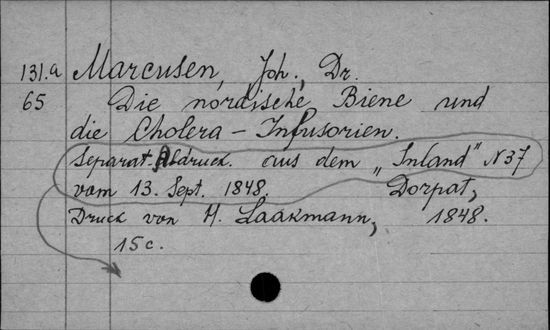 131.a Marcusen, Joh., Dr.
65 Die nordische Biene und
die Cholera - Infusorien.
Separat-Abdruck. aus dem „Inland" N 37
vom 13. Sept. 1848. Dorpat,
Druck von H. Laakmann, 1848.
15 c.